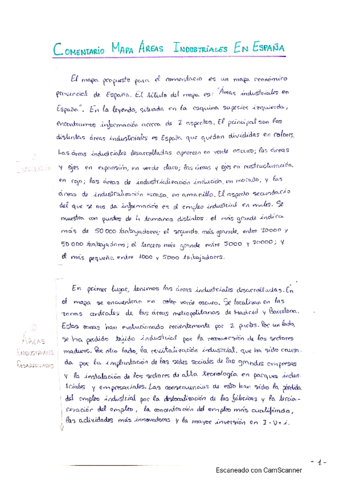 COMENTARIO MAPA ÁREAS INDUSTRIALES EN ESPAÑA
El mapa propuesto para el comentario es un mapa económico
provincial de España. El título del mapa es: "Áreas industriales en
España". En la leyenda, situada en la esquina superior izquierda,
encontramos información acerca de 2 aspectos. El principal son las
distintas áreas industriales en España que quedan divididas en colores.
Las áreas industriales desarrolladas aparecen en verde oscuro; las áreas
y ejes en expansión, en verde claro; las áreas y ejes en reestructuración
en rojo; las áreas de industrialización inducida, en morado; y las
áreas de industrialización escasa, en amarillo. El aspecto secundario
del que se nos da información es el empleo industrial en miles. Se
muestran con puntos de 4 tamaños distintos: el más grande indica
más de 50000 trabajadores; el segundo más grande, entre 20000 y
50000 trabajadores; el tercero más grande entre 5000 y 20000; y
el más pequeño, entre 1000 y 5000 trabajadores.
En primer lugar, tenemos las áreas industriales desarrolladas. En
el mapa se encuentran en color verde oscuro. Se localizan en las
zonas centrales de las áreas metropolitanas de Madrid y Barcelona.
Estas zonas han evolucionado recientemente por 2 pistas. Por un lado
se ha perdido tejido industrial por la reconversión de los sectores
maduros. Por otro lado, la revitalización industrial, que ha sido causa-
da por la implantación de las sedes sociales de los grandes empresas
y la instalación de los sectores de alta tecnología en parques indus-
triales y empresariales. Las consecuencias de esto han sido la pérdida
del empleo industrial por la deslocalización de las fábricas y la tercia-
rización del empleo, la concentración del empleo más cualificado,
las actividades más innovadoras y la mayor inversión en I+D+i.
ÁREAS
INDUSTRIALES
DESARROLLADAS
- 1 -
Escaneado con CamScanner